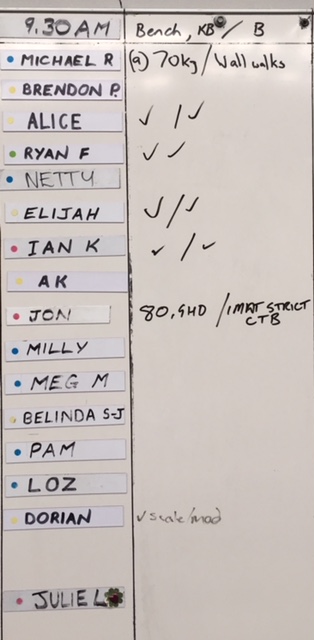 9.30 AM Bench, KB / B
MICHAEL R (a) 70kg / Wall walks
BRENDON P.
ALICE ✓ / ✓
RYAN F ✓ ✓
NETTY
ELIJAH ✓ / ✓
IAN K ✓ / ✓
AK
JON 80, GHD / 1 MAT STRICT
CTB
MILLY
MEG M
BELINDA S-J
PAM
LOZ
DORIAN ✓ scale/mod
JULIE L